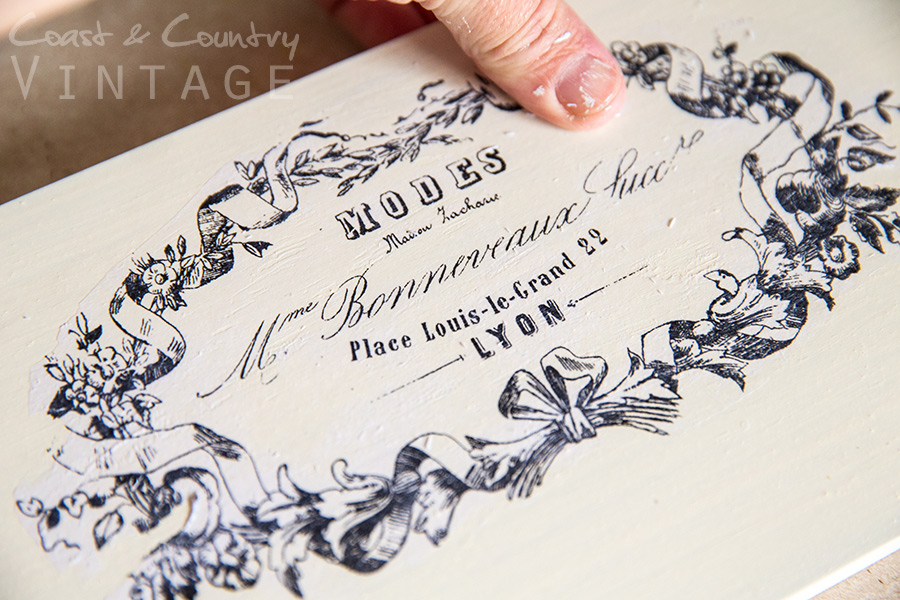 Coast & Country
VINTAGE
MODES
Maison Zacharie
Mme Bonneveaux Succre
Place Louis-le-Grand 22
LYON